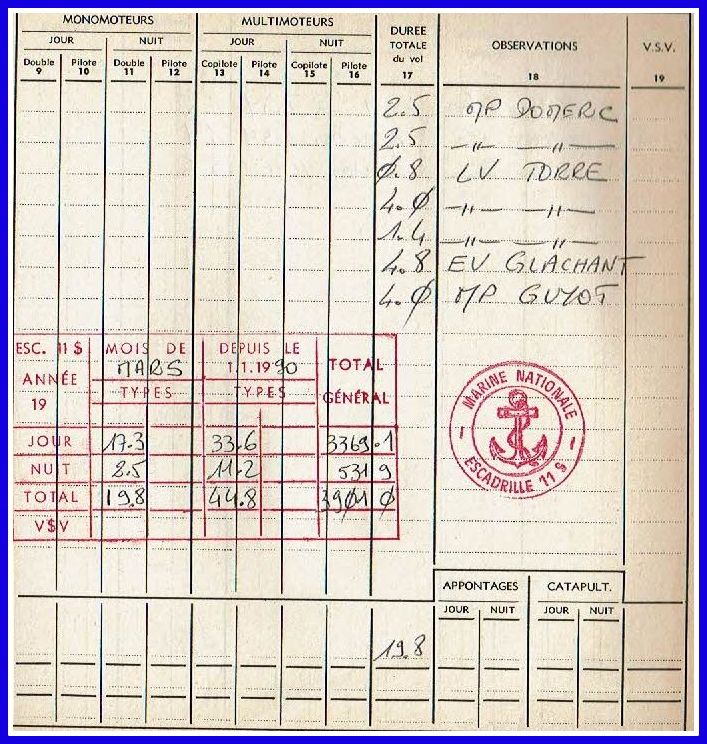 MONOMOTEURS MULTIMOTEURS DUREE TOTALE du vol OBSERVATIONS V.S.V.
JOUR NUIT JOUR NUIT
Double Pilote Double Pilote Copilote Pilote Copilote Pilote
9 10 11 12 13 14 15 16 17 18 19
2.5 MP DOMERC
2.5 —〃— —〃—
0.8 LV TORRE
4.0 —〃— —〃—
1.4 —〃— —〃—
4.8 EV GLACHANT
4.0 MP GUYOT
ESC. 11 S MOIS DE MARS DEPUIS LE 1.1.1990 TOTAL GÉNÉRAL
ANNÉE 19 TYPES TYPES
JOUR 17.3 33.6 3369.1
NUIT 2.5 11.2 531 9
TOTAL 19.8 44.8 3901 0
V$V
MARINE NATIONALE
ESCADRILLE 11 S
APPONTAGES CATAPULT.
JOUR NUIT JOUR NUIT
19.8